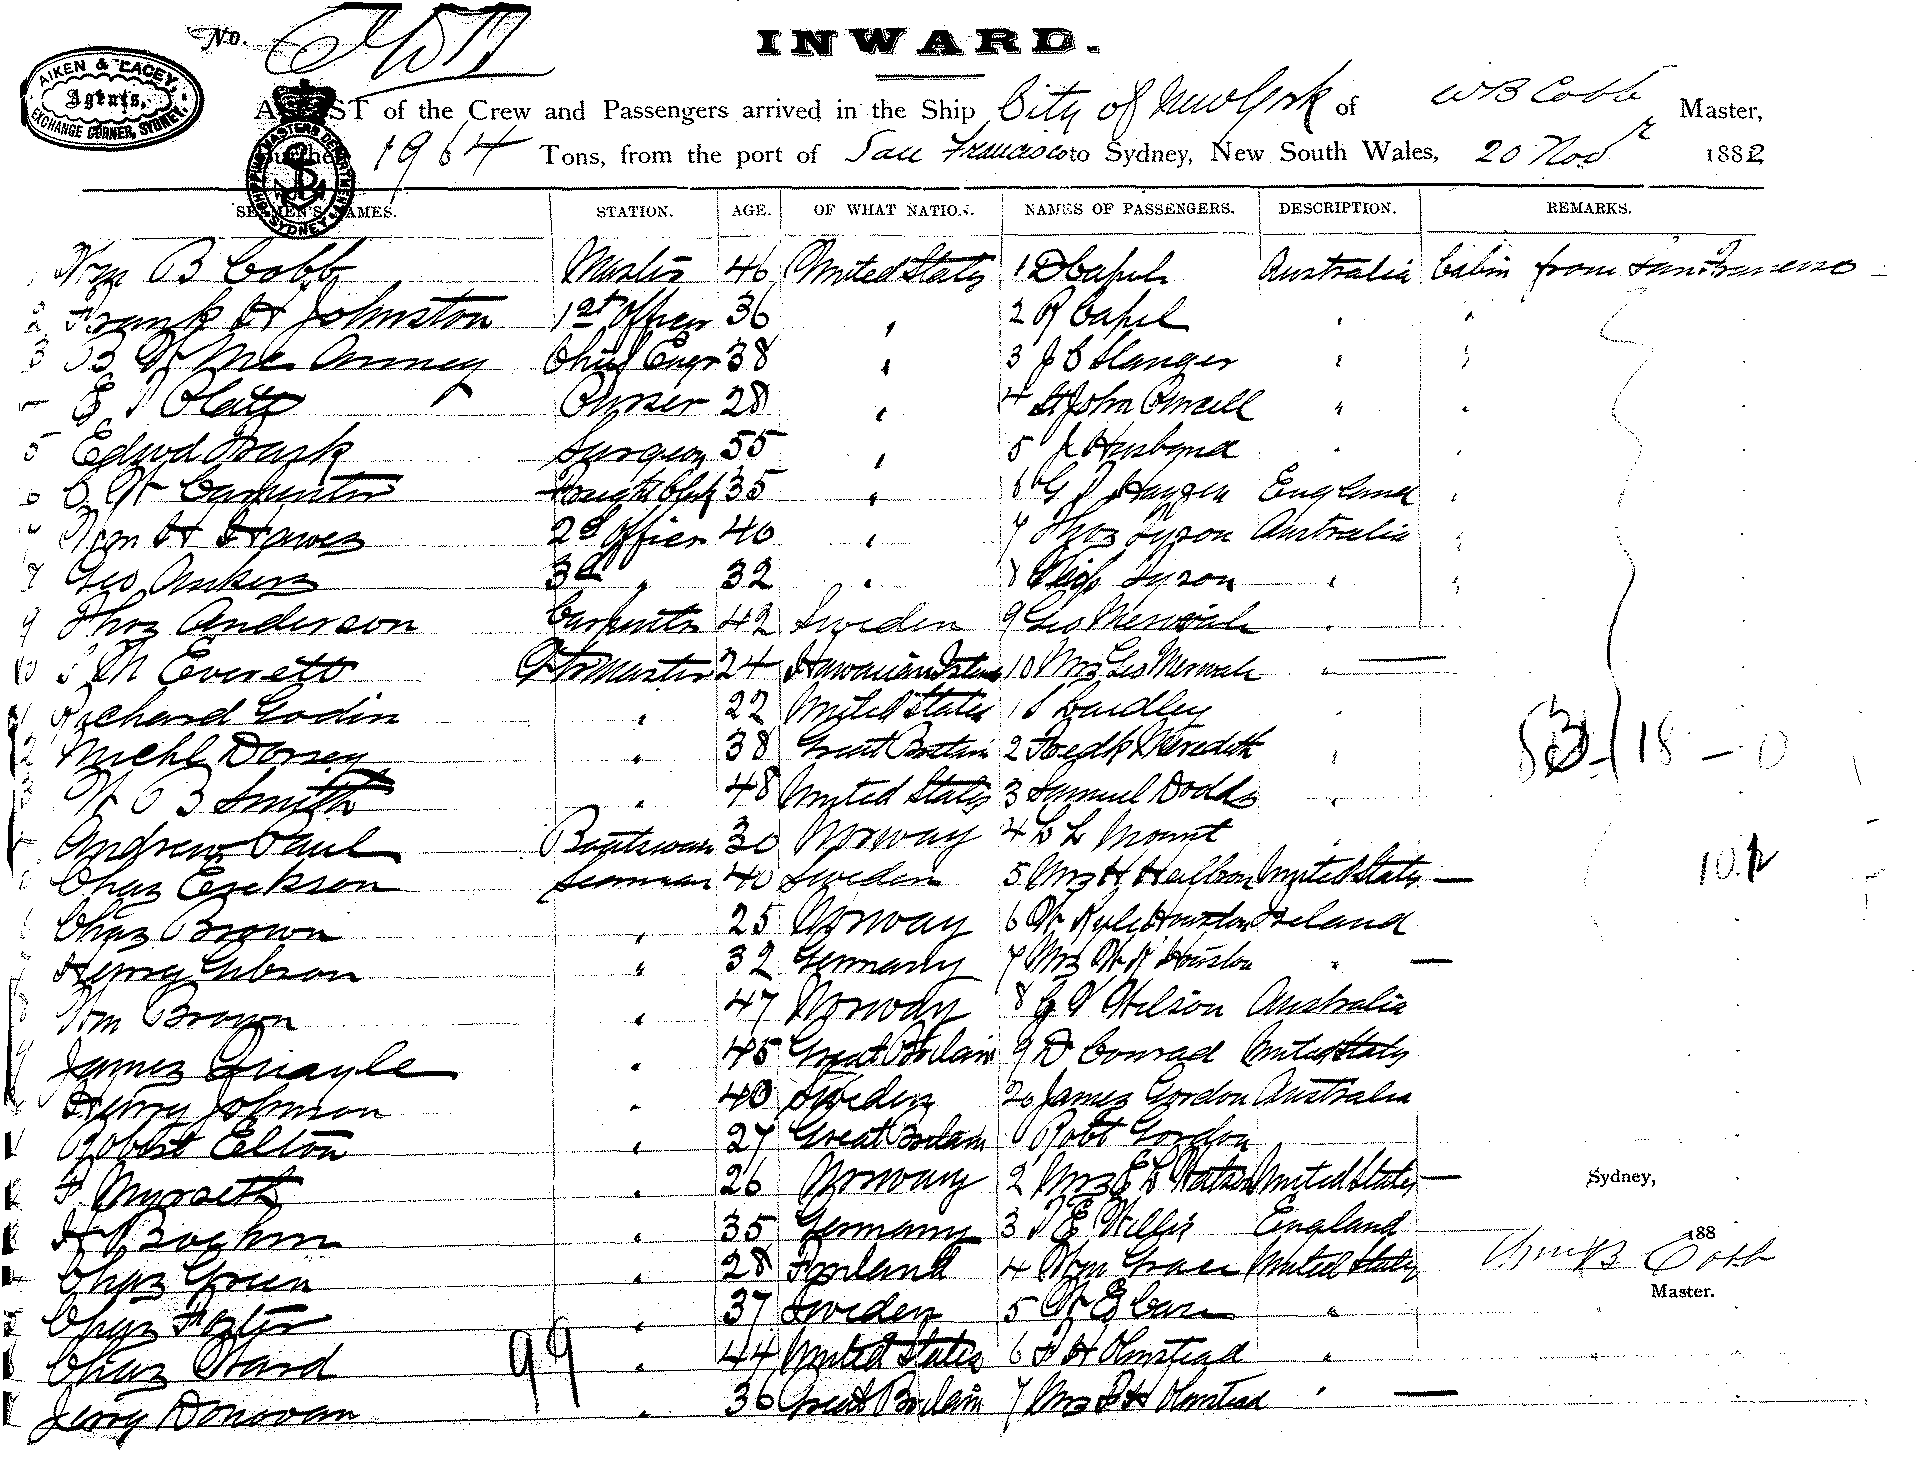 No.
INWARD.
AIKEN & LACEY,
Agents,
EXCHANGE CORNER, SYDNEY.
A LIST of the Crew and Passengers arrived in the Ship City of New York of W B Cobb Master,
1964 Tons, from the port of San Francisco to Sydney, New South Wales, 20 Novr 1882
SHIPPING MASTERS DEPARTMENT SYDNEY
SEAMEN'S NAMES. STATION. AGE. OF WHAT NATION. NAMES OF PASSENGERS. DESCRIPTION. REMARKS.
1 Wm B Cobb Master 46 United States 1 D Capel Australia Cabin from San Francisco
2 Frank H Johnston 1st Officer 36 " 2 R Capel " "
3 Chief Engr 38 " 3 J E Slanger " "
Purser 28 " 4 St John Purcell " "
5 Edwd Trask Surgeon 55 " 5 J Husband " "
6 C W Carpenter Freight Clerk 35 " 6 England "
Wm H Hawes 2d Officer 40 " 7 Thos Tyson Australia "
8 Geo Ankers 3d " 32 " 8 Tyson " "
9 Thos Anderson Carpenter 42 Sweden 9 Geo "
10 M Everett Qr Master 24 Hawaiian 10 Mrs Geo "
Richard Godin " 22 United States 1 "
2 Michl Dorsey " 38 Great Britain 2 Fredk Meredith "
3 W B Smith " 48 United States 3 Samuel Dodds "
Andrew Paul Boatswain 30 Norway 4 L Mount "
Chas Erickson Seaman 40 Sweden 5 Mrs H United States
Chas Brown " 25 Norway 6 W Kyle Houston Ireland
Henry Gibson " 32 Germany 7 Mrs W K Houston "
Wm Brown " 47 Norway 8 G Wilson Australia
James Quayle " 45 Great Britain 9 D Conrad United States
Henry Johnson " 40 Sweden 20 James Gordon Australia
Robert Elton " 27 Great Britain 1 Robt Gordon
" 26 Norway 2 Mrs E L Watson United States
" 35 Germany 3 T E Willis England
Chas Green " 28 Finland 4 Wm Grace United States
Chas Foster " 37 Sweden 5 W E "
Chas Ward " 44 United States 6 F H Olmstead "
Jerry Donovan " 36 Great Britain 7 Mrs F H Olmstead "
18 - 0
99
Sydney,
188
Wm B Cobb
Master.